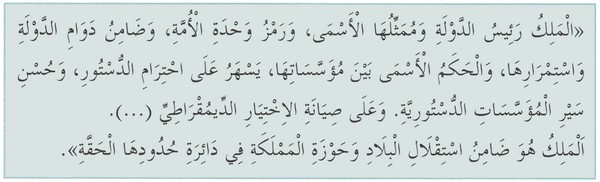 «الْمَلِكُ رَئِيسُ الدَّوْلَةِ وَمُمَثِّلُهَا الْأَسْمَى، وَرَمْزُ وَحْدَةِ الْأُمَّةِ، وَضَامِنُ دَوَامِ الدَّوْلَةِ
وَاسْتِمْرَارِهَا، وَالْحَكَمُ الْأَسْمَى بَيْنَ مُؤَسَّسَاتِهَا، يَسْهَرُ عَلَى احْتِرَامِ الدُّسْتُورِ، وَحُسْنِ
سَيْرِ الْمُؤَسَّسَاتِ الدُّسْتُورِيَّةِ. وَعَلَى صِيَانَةِ الِاخْتِيَارِ الدِّيمُقْرَاطِيِّ (...).
اَلْمَلِكُ هُوَ ضَامِنُ اسْتِقْلَالِ الْبِلَادِ وَحَوْزَةِ الْمَمْلَكَةِ فِي دَائِرَةِ حُدُودِهَا الْحَقَّةِ».